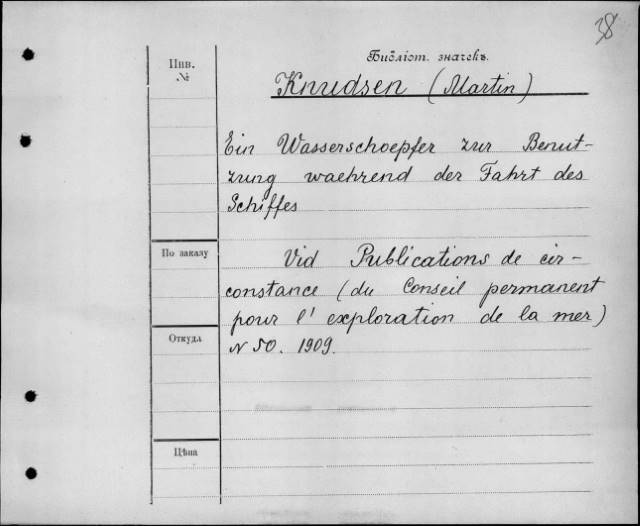 38
Библіот. значекъ.
Инв.
№
Knudsen (Martin)
Ein Wasserschoepfer zur Benut-
zung waehrend der Fahrt des
Schiffes
По заказу
Vid Publications de cir-
constance (du Conseil permanent
pour l'exploration de la mer)
Откуда
N 50. 1909.
Цѣна